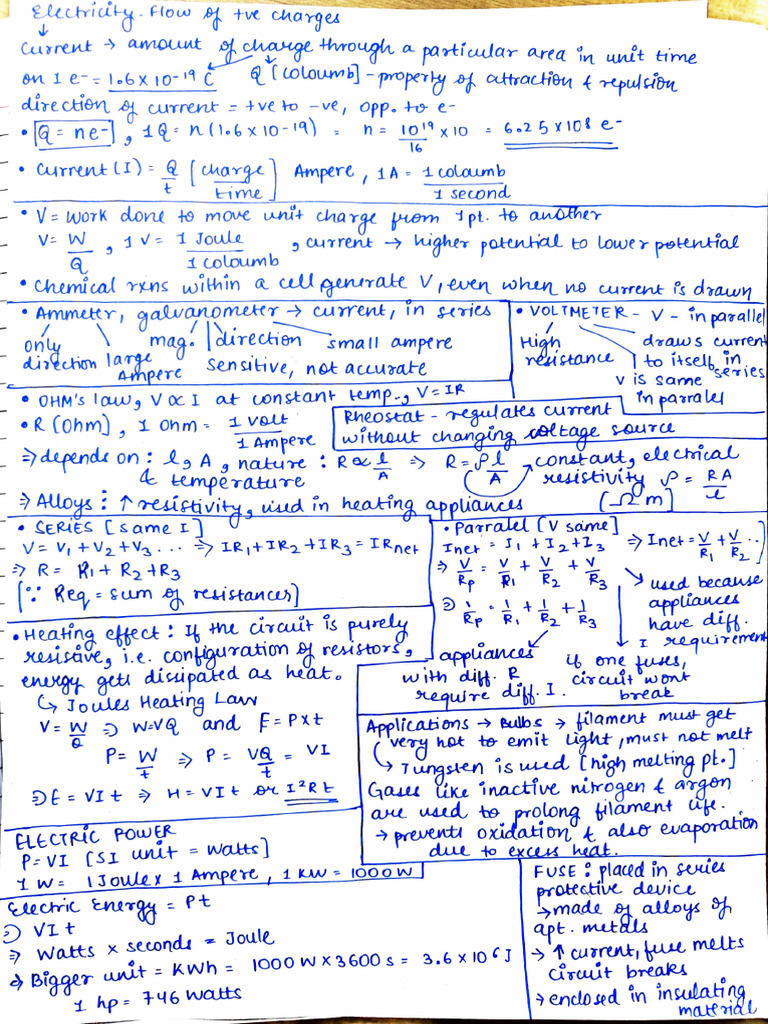 Electricity - Flow of +ve charges
Current → amount of charge through a particular area in unit time
on 1 e- = 1.6 x 10-19 C Q [coloumb] - property of attraction & repulsion
direction of current = +ve to -ve, opp. to e-
• Q = ne-, 1Q = n(1.6 x 10-19) = n = 10^19/16 x 10 = 6.25 x 10^8 e-
• Current (I) = Q/t [charge/time] Ampere, 1A = 1 coloumb/1 second
• V = work done to move unit charge from 1pt. to another
V = W/Q, 1 V = 1 Joule/1 coloumb, current → higher potential to lower potential
• Chemical rxns within a cell generate V, even when no current is drawn
• Ammeter, galvanometer → current, in series
only direction
large Ampere
mag. | direction
small ampere
Sensitive, not accurate
• VOLTMETER - V - in parallel
High resistance
draws current to itself in series
V is same in parralel
• OHM's law, V ∝ I at constant temp., V = IR
• R [Ohm], 1 Ohm = 1 Volt/1 Ampere
Rheostat - regulates current
without changing voltage source
⇒ depends on : l, A, nature : R ∝ l/A ⇒ R = ρ l/A → constant, electrical
& temperature
resistivity ρ = RA/l
[Ωm]
⇒ Alloys : ↑ resistivity, used in heating appliances
• SERIES [same I]
V = V1 + V2 + V3 ... ⇒ IR1 + IR2 + IR3 = IRnet
⇒ R = R1 + R2 + R3
[∵ Req = sum of resistances]
• Parralel [V same]
Inet = I1 + I2 + I3 ⇒ Inet = V/R1 + V/R2 ..
⇒ V/Rp = V/R1 + V/R2 + V/R3
⇒ 1/Rp = 1/R1 + 1/R2 + 1/R3
used because
appliances
have diff.
I requirement
appliances
with diff. R
require diff. I.
if one fuses,
circuit wont
break
• Heating effect : If the circuit is purely
resistive, i.e. configuration of resistors,
energy gets dissipated as heat.
↳ Joules Heating Law
V = W/Q ⇒ W = VQ and E = P x t
P = W/t ⇒ P = VQ/t = VI
⇒ E = VIt ⇒ H = VIt or I²Rt
Applications → Bulbs → filament must get
very hot to emit light, must not melt
↳ Tungsten is used [high melting pt.]
Gases like inactive nitrogen & argon
are used to prolong filament life.
→ prevents oxidation & also evaporation
due to excess heat.
ELECTRIC POWER
P = VI [SI unit = Watts]
1 W = 1 Joule x 1 Ampere, 1 KW = 1000 W
Electric Energy = Pt
⇒ VIt
⇒ Watts x seconds = Joule
⇒ Bigger unit = KWh = 1000 W x 3600 s = 3.6 x 10^6 J
1 hp = 746 Watts
FUSE : placed in series
protective device
→ made of alloys of
apt. metals
→ ↑ current, fuse melts
circuit breaks
→ enclosed in insulating
material